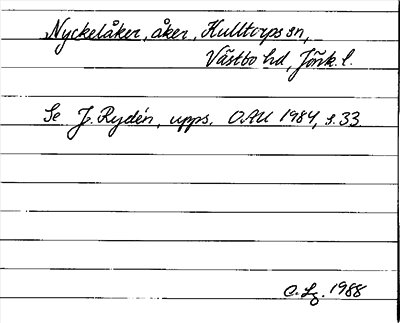 Nyckelåker, åker, Kulltorps sn,
Västbo hd, Jönk. l.
Se J. Rydén, upps. OAU 1984, s. 33
C. Lg. 1988